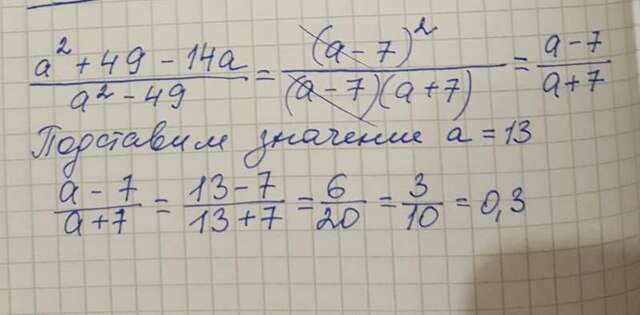 (a² + 49 - 14a)/(a² - 49) = (a - 7)²/((a - 7)(a + 7)) = (a - 7)/(a + 7)
Подставим значение a = 13
(a - 7)/(a + 7) = (13 - 7)/(13 + 7) = 6/20 = 3/10 = 0,3